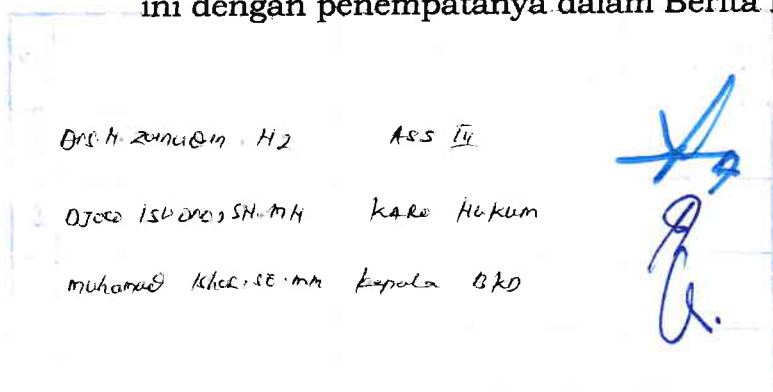 ini dengan penempatanya dalam Berita
Drs. H. Zainudin. HZ Ass III
Djoco SH. MH KARO HUKUM
Muhamad SE. MM Kepala BKD